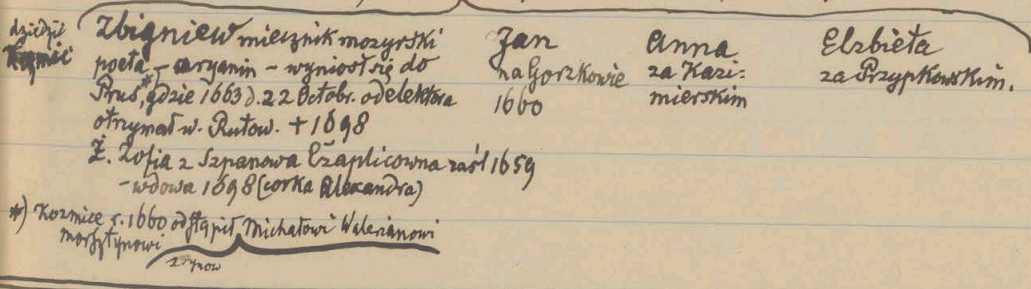 dziedzic
Kozmic
Zbigniew miecznik mozyrski
poeta, – aryanin – wyniosł się do
Prus,*) gdzie 1663 d. 22 Octobr. od elektora
otrzymał w. Rutow. + 1698
Ż. Zofia z Szpanowa Czaplicowna zaśl 1659
– wdowa 1698 (corka Alexandra)
Jan
na Gorzkowie
1660
Anna
za Kazi-
mierskim
Elzbieta
za Przypkowskim.
*) Kozmice r. 1660 odstąpił Michałowi Walerianowi
Morsztynowi
2 synow